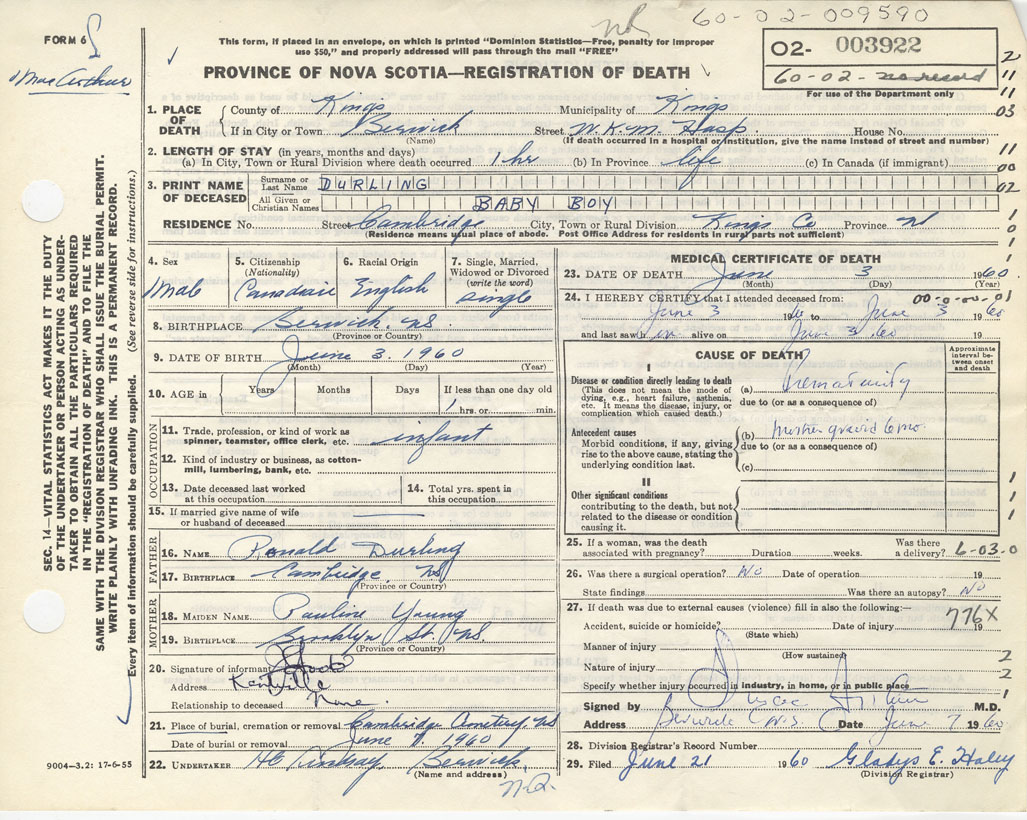 60-02-009590
FORM 6
nR
This form, if placed in an envelope, on which is printed "Dominion Statistics—Free, penalty for improper
use $50," and properly addressed will pass through the mail "FREE"
02- 003922
60-02- no record
For use of the Department only
MacArthur
PROVINCE OF NOVA SCOTIA—REGISTRATION OF DEATH
1. PLACE OF DEATH
County of Kings Municipality of Kings
If in City or Town Berwick Street W.K.M. Hosp. House No.
(Name) (If death occurred in a hospital or institution, give the name instead of street and number)
2. LENGTH OF STAY (in years, months and days)
(a) In City, Town or Rural Division where death occurred 1 hr (b) In Province life (c) In Canada (if immigrant)
3. PRINT NAME OF DECEASED
Surname or Last Name DURLING
All Given or Christian Names BABY BOY
RESIDENCE No. Street Cambridge City, Town or Rural Division Kings Co Province NS
(Residence means usual place of abode. Post Office Address for residents in rural parts not sufficient)
4. Sex
Male
5. Citizenship
(Nationality)
Canadian
6. Racial Origin
English
7. Single, Married,
Widowed or Divorced
(write the word)
single
8. BIRTHPLACE Berwick, NS.
(Province or Country)
9. DATE OF BIRTH June 3. 1960
(Month) (Day) (Year)
10. AGE in Years Months Days If less than one day old
1 hrs. or min.
OCCUPATION
11. Trade, profession, or kind of work as
spinner, teamster, office clerk, etc. infant
12. Kind of industry or business, as cotton-
mill, lumbering, bank, etc.
13. Date deceased last worked
at this occupation
14. Total yrs. spent in
this occupation
15. If married give name of wife
or husband of deceased
FATHER
16. NAME Ronald Durling
17. BIRTHPLACE Cambridge, NS
(Province or Country)
MOTHER
18. MAIDEN NAME Pauline Young
19. BIRTHPLACE Brooklyn St. NS
(Province or Country)
20. Signature of informant
Address Kentville
Relationship to deceased None.
21. Place of burial, cremation or removal Cambridge Cemetery, NS
Date of burial or removal June 7, 1960
22. UNDERTAKER Berwick,
(Name and address)
MEDICAL CERTIFICATE OF DEATH
23. DATE OF DEATH June 3 1960
(Month) (Day) (Year)
24. I HEREBY CERTIFY that I attended deceased from: 00-0-00-01
June 3 1960 to June 3 1960
and last saw h im alive on June 3 60
CAUSE OF DEATH
Approximate interval between onset and death
I
Disease or condition directly leading to death
(This does not mean the mode of
dying, e.g., heart failure, asthenia,
etc. It means the disease, injury, or
complication which caused death.)
(a) Prematurity
due to (or as a consequence of)
Antecedent causes
Morbid conditions, if any, giving
rise to the above cause, stating the
underlying condition last.
(b) mother gravid 6 mo.
due to (or as a consequence of)
(c)
II
Other significant conditions
contributing to the death, but not
related to the disease or condition
causing it.
25. If a woman, was the death
associated with pregnancy? Duration weeks. Was there a delivery? 6-03-0
26. Was there a surgical operation? No Date of operation 19
State findings Was there an autopsy? No
27. If death was due to external causes (violence) fill in also the following:—
776X
Accident, suicide or homicide? Date of injury 19
(State which)
Manner of injury
(How sustained)
Nature of injury
Specify whether injury occurred in industry, in home, or in public place
Signed by M.D.
Address Berwick N.S. Date June 7 1960
28. Division Registrar's Record Number
29. Filed June 21 1960 Gladys E. Haley
(Division Registrar)
SEC. 14—VITAL STATISTICS ACT MAKES IT THE DUTY
OF THE UNDERTAKER OR PERSON ACTING AS UNDER-
TAKER TO OBTAIN ALL THE PARTICULARS REQUIRED
IN THE "REGISTRATION OF DEATH" AND TO FILE THE
SAME WITH THE DIVISION REGISTRAR WHO SHALL ISSUE THE BURIAL PERMIT.
WRITE PLAINLY WITH UNFADING INK. THIS IS A PERMANENT RECORD.
Every item of information should be carefully supplied. (See reverse side for instructions.)
9004—3.2: 17-6-55
2
11
11
03
11
00
02
1
1
2
2
1